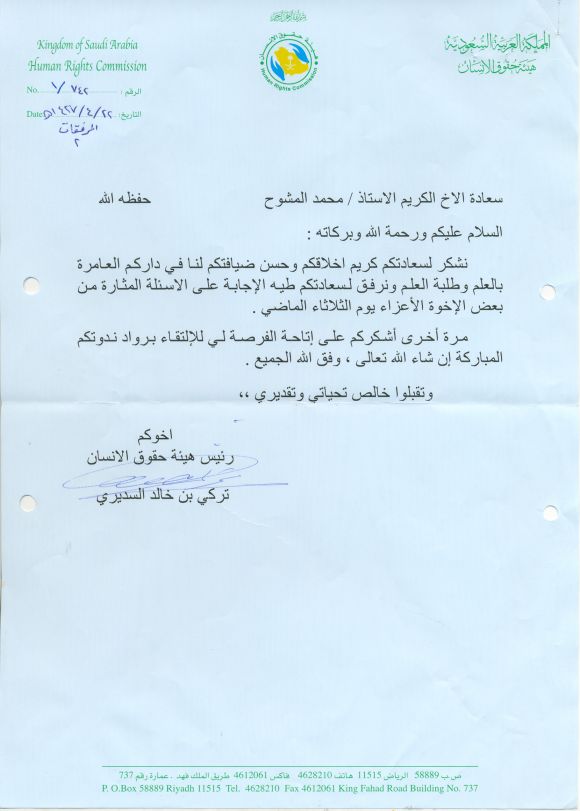 بسم الله الرحمن الرحيم
المملكة العربية السعودية
هيئة حقوق الانسان
Kingdom of Saudi Arabia
Human Rights Commission
هيئة حقوق الإنسان
Human Rights Commission
No. ١/٧٤٢ الرقم :
Date ١٤٢٧/٤/٢٢هـ التاريخ :
المرفقات
٢
سعادة الاخ الكريم الاستاذ / محمد المشوح حفظه الله
السلام عليكم ورحمة الله وبركاته :
نشكر لسعادتكم كريم اخلاقكم وحسن ضيافتكم لنا في داركم العامرة
بالعلم وطلبة العلم ونرفق لسعادتكم طيه الإجابة على الاسئلة المثارة من
بعض الإخوة الأعزاء يوم الثلاثاء الماضي .
مرة أخرى أشكركم على إتاحة الفرصة لي للإلتقاء برواد ندوتكم
المباركة إن شاء الله تعالى ، وفق الله الجميع .
وتقبلوا خالص تحياتي وتقديري ،،
اخوكم
رئيس هيئة حقوق الانسان
تركي بن خالد السديري
ص.ب 58889 الرياض 11515 هاتف 4628210 فاكس 4612061 طريق الملك فهد . عمارة رقم 737
P. O.Box 58889 Riyadh 11515 Tel. 4628210 Fax 4612061 King Fahad Road Building No. 737